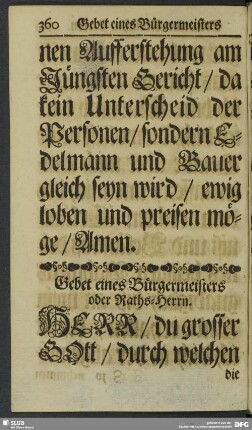 360 Gebet eines Bürgermeisters
nen Aufferstehung am
Jüngsten Gericht / da
kein Unterscheid der
Personen / sondern E-
delmann und Bauer
gleich seyn wird / ewig
loben und preisen mö-
ge / Amen.
Gebet eines Bürgermeisters
oder Raths-Herrn.
HERR / du grosser
GOtt / durch welchen
die
SLUB
DFG